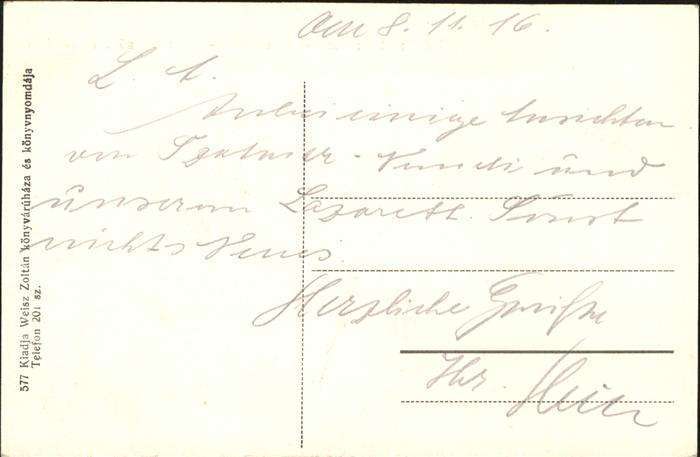 den 8.11.16.
L. A.
Anbei einige Ansichten
von Szatmár-Nemeti und
unserem Lazareth. Sonst
nichts Neues.
Herzliche Grüße
Ihr
577 Kiadja Weisz Zoltán könyvárúháza és könyvnyomdája
Telefon 201 sz.